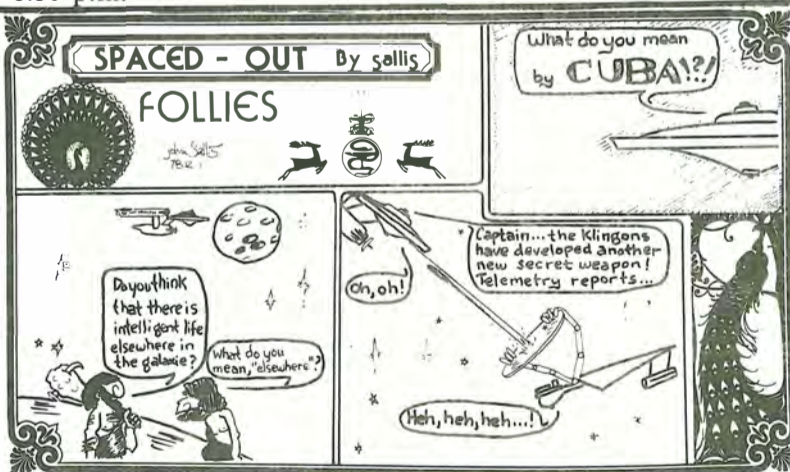 SPACED - OUT By sallis
FOLLIES
What do you mean
by CUBA!?!
Do you think
that there is
intelligent life
elsewhere in
the galaxie?
What do you
mean, "elsewhere"?
Oh, oh!
Captain... the Klingons
have developed another
new secret weapon!
Telemetry reports...
Heh, heh, heh...!